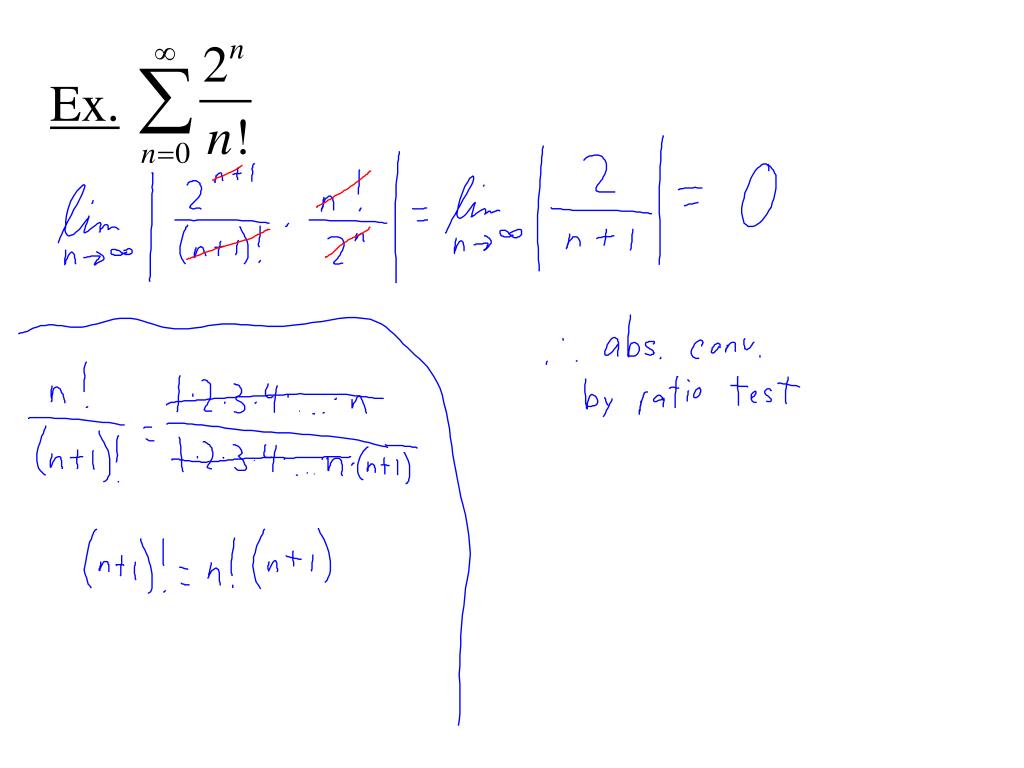 Ex. \sum_{n=0}^{\infty} \frac{2^n}{n!}
\lim_{n \to \infty} \left| \frac{2^{n+1}}{(n+1)!} \cdot \frac{n!}{2^n} \right| = \lim_{n \to \infty} \left| \frac{2}{n+1} \right| = 0
∴ abs. conv.
by ratio test
\frac{n!}{(n+1)!} = \frac{1 \cdot 2 \cdot 3 \cdot 4 \cdot \ldots \cdot n}{1 \cdot 2 \cdot 3 \cdot 4 \ldots n \cdot (n+1)}
(n+1)! = n! (n+1)